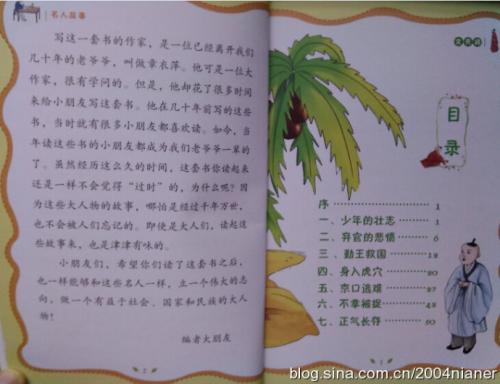 名人故事
写这一套书的作家，是一位已经离开我们
几十年的老爷爷，叫做章衣萍。他可是一位大
作家，很有学问的。但是，他却花了很多时间
来给小朋友写这套书。他在几十年前写的这些
书，当时就有很多小朋友都喜欢读。如今，当
年读这些书的小朋友都成为我们老爷爷一辈的
了。虽然经历这么久的时间，这套书你读起来
还是一样不会觉得“过时”的，为什么呢？因
为这些大人物的故事，哪怕是经过千年万世，
也不会被人们忘记的。即使是大人们，读起这
些故事来，也是津津有味的。
小朋友们，希望你们读了这套书之后，
也一样能够和这些名人一样，立一个伟大的志
向，做一个有益于社会、国家和民族的大人
物！
编者大朋友
2
文天祥
目
录
序 1
一、少年的壮志 1
二、弃官的悲愤 6
三、勤王救国 12
四、身入虎穴 20
五、京口逃难 27
六、不幸被捉 42
七、正气长存 50
1
blog.sina.com.cn/2004nianer